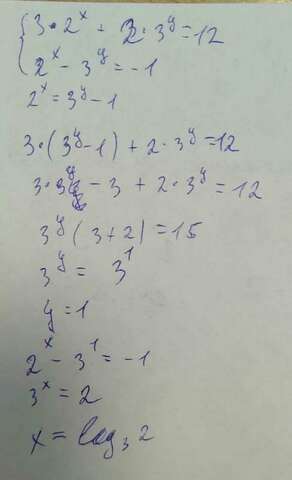 3·2^x + 2·3^y = 12
2^x - 3^y = -1
2^x = 3^y - 1
3·(3^y - 1) + 2·3^y = 12
3·3^y - 3 + 2·3^y = 12
3^y (3+2) = 15
3^y = 3^1
y = 1
2^x - 3^1 = -1
3^x = 2
x = log_3 2